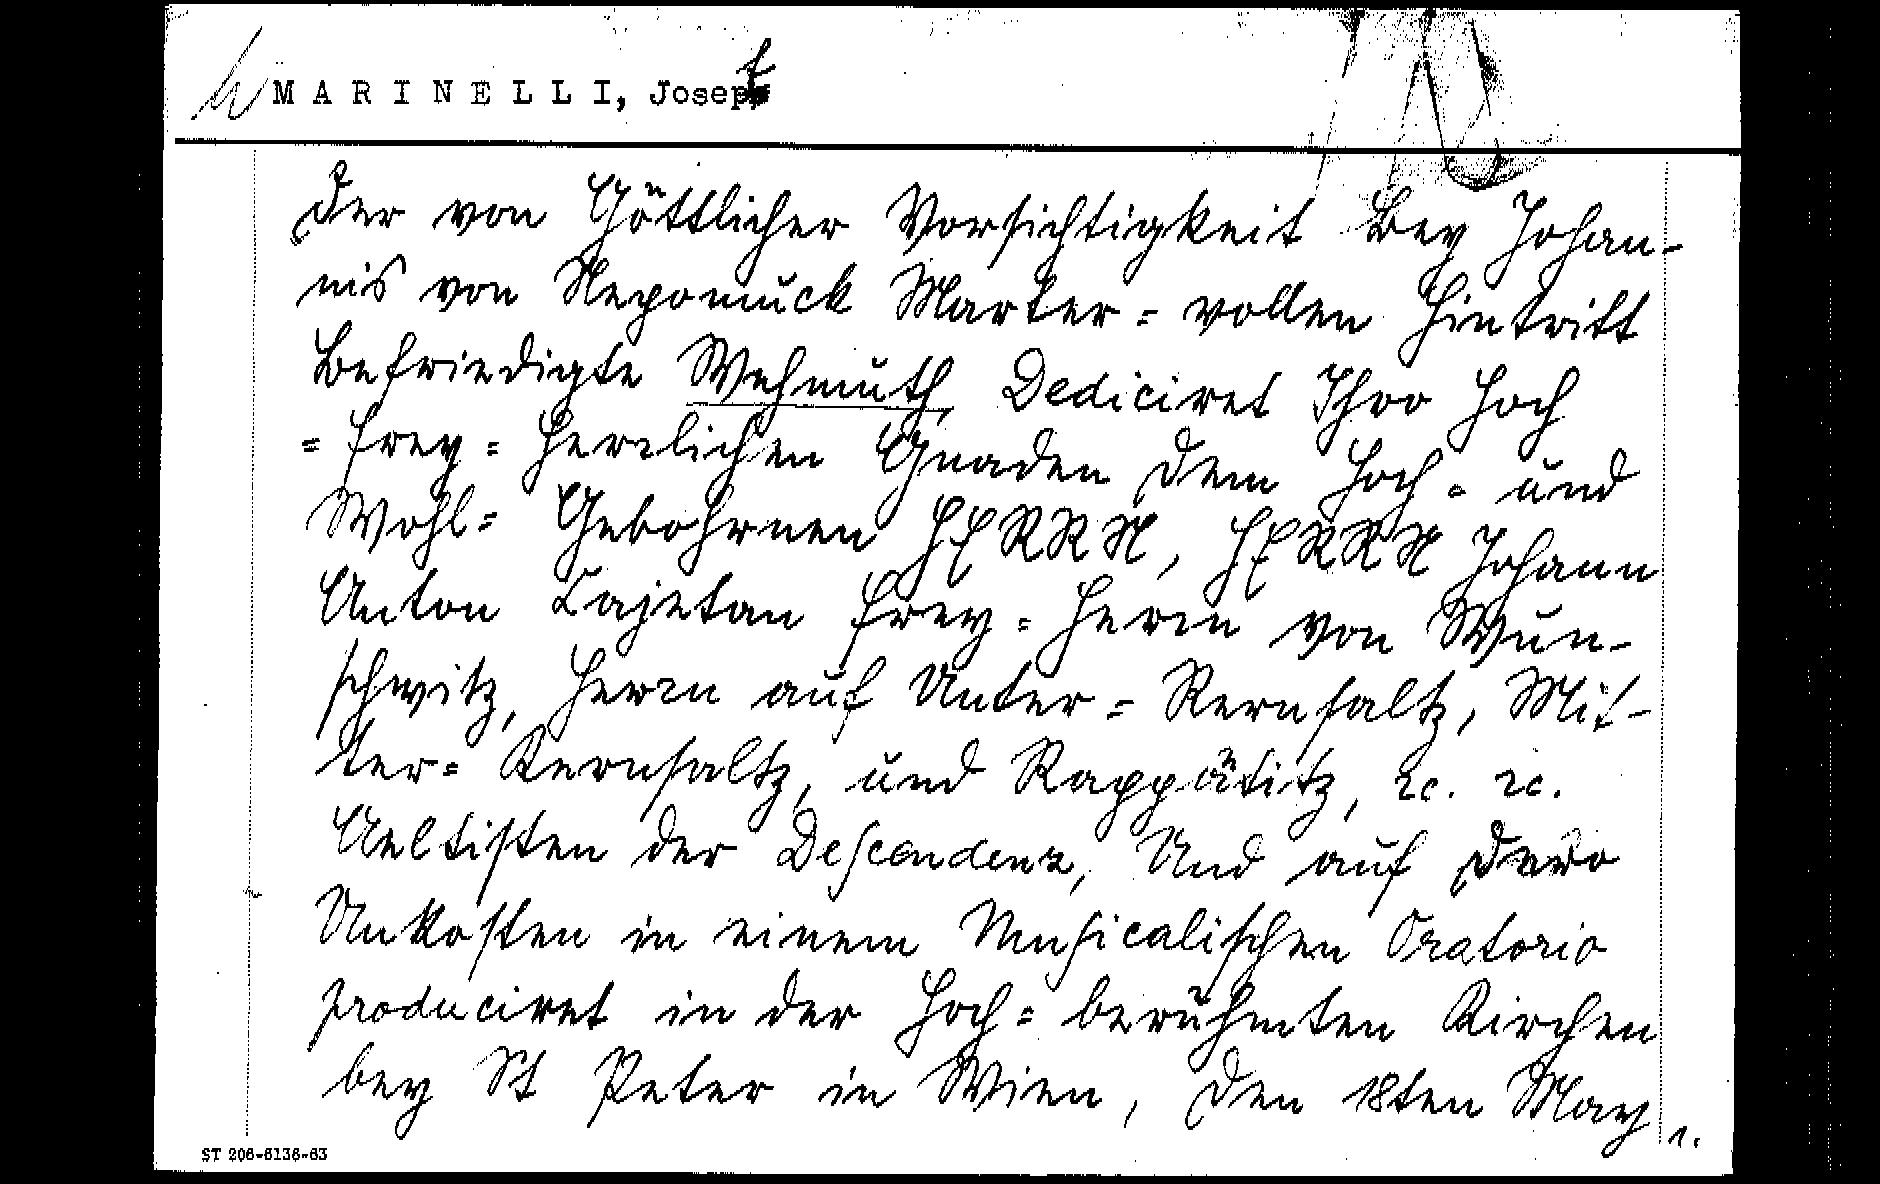 MARINELLI, Josef
Der von Göttlicher Vorsichtigkeit Bey Johan-
nis von Nepomuck Marter= vollen Hintritt
Befriedigte Wehmuth, Dediciret Ihro Hoch
= Frey= Herrlichen Gnaden dem Hoch= und
Wohl= Gebohrnen HERRN, HERRN Johann
Anton Cajetan Frey= Herrn von Wun-
schwitz, Herrn auf Unter= Kernsaltz, Mit-
ter= Kernsaltz, und Rappätitz, 2c. 2c.
Aeltisten der Descendenz, Und auf Dero
Unkosten in einem Musicalischen Oratorio
produciret in der Hoch= berühmten Kirchen
bey St Peter in Wien, den 18ten May
1.
ST 206-6136-63